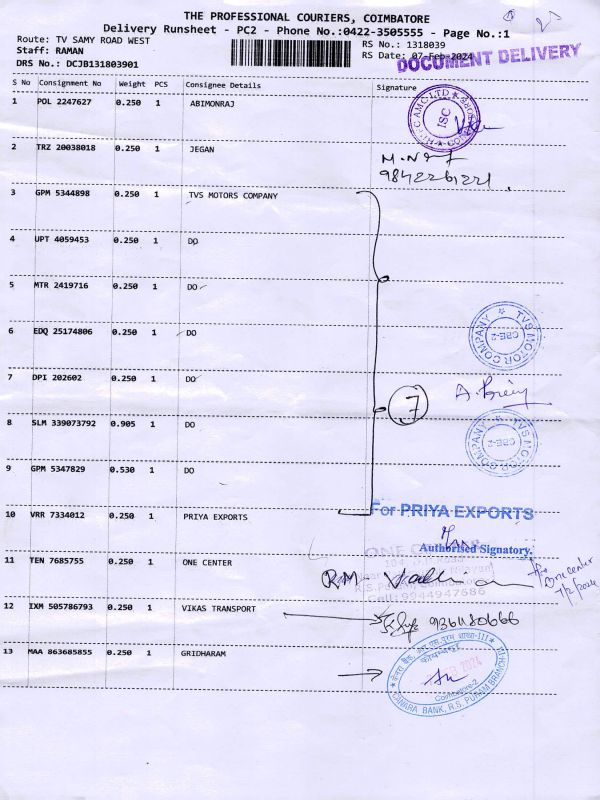 THE PROFESSIONAL COURIERS, COIMBATORE
Delivery Runsheet - PC2 - Phone No.:0422-3505555 - Page No.:1
Route: TV SAMY ROAD WEST
RS No.: 1318039
Staff: RAMAN
RS Date: 07-Feb-2024
DOCUMENT DELIVERY
DRS No.: DCJB131803901
S No Consignment No Weight PCS Consignee Details Signature
1 POL 2247627 0.250 1 ABIMONRAJ
ISC
2 TRZ 20038018 0.250 1 JEGAN
9842261221
3 GPM 5344898 0.250 1 TVS MOTORS COMPANY
4 UPT 4059453 0.250 1 DO
5 MTR 2419716 0.250 1 DO
6 EDQ 25174806 0.250 1 DO
TVS MOTOR COMPANY
CBE-2
7 DPI 202602 0.250 1 DO
7
8 SLM 339073792 0.905 1 DO
TVS MOTOR COMPANY
CBE-2
9 GPM 5347829 0.530 1 DO
10 VRR 7334012 0.250 1 PRIYA EXPORTS
For PRIYA EXPORTS
Authorised Signatory.
11 TEN 7685755 0.250 1 ONE CENTER
ONE
Cell:9944947686
One center
7/2/2024
12 IXM 505786793 0.250 1 VIKAS TRANSPORT
9361180666
13 MAA 863685855 0.250 1 GRIDHARAM
2024
Coimbatore-2
CANARA BANK, R.S. PURAM BRANCH III